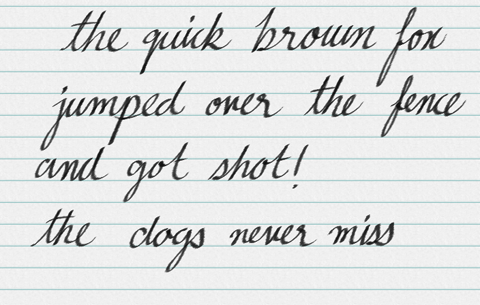 the quick brown fox
jumped over the fence
and got shot!
the dogs never miss